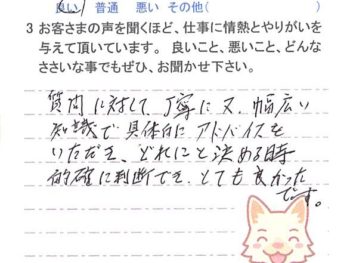 良い 普通 悪い その他(　　　)
3 お客さまの声を聞くほど、仕事に情熱とやりがいを
与えて頂いています。 良いこと、悪いこと、どんな
ささいな事でもぜひ、お聞かせ下さい。
質問に対して、丁寧に又、幅広い
知識で具体的にアドバイスを
いただき、どれにと決める時
的確に判断でき、とても良かった
です。